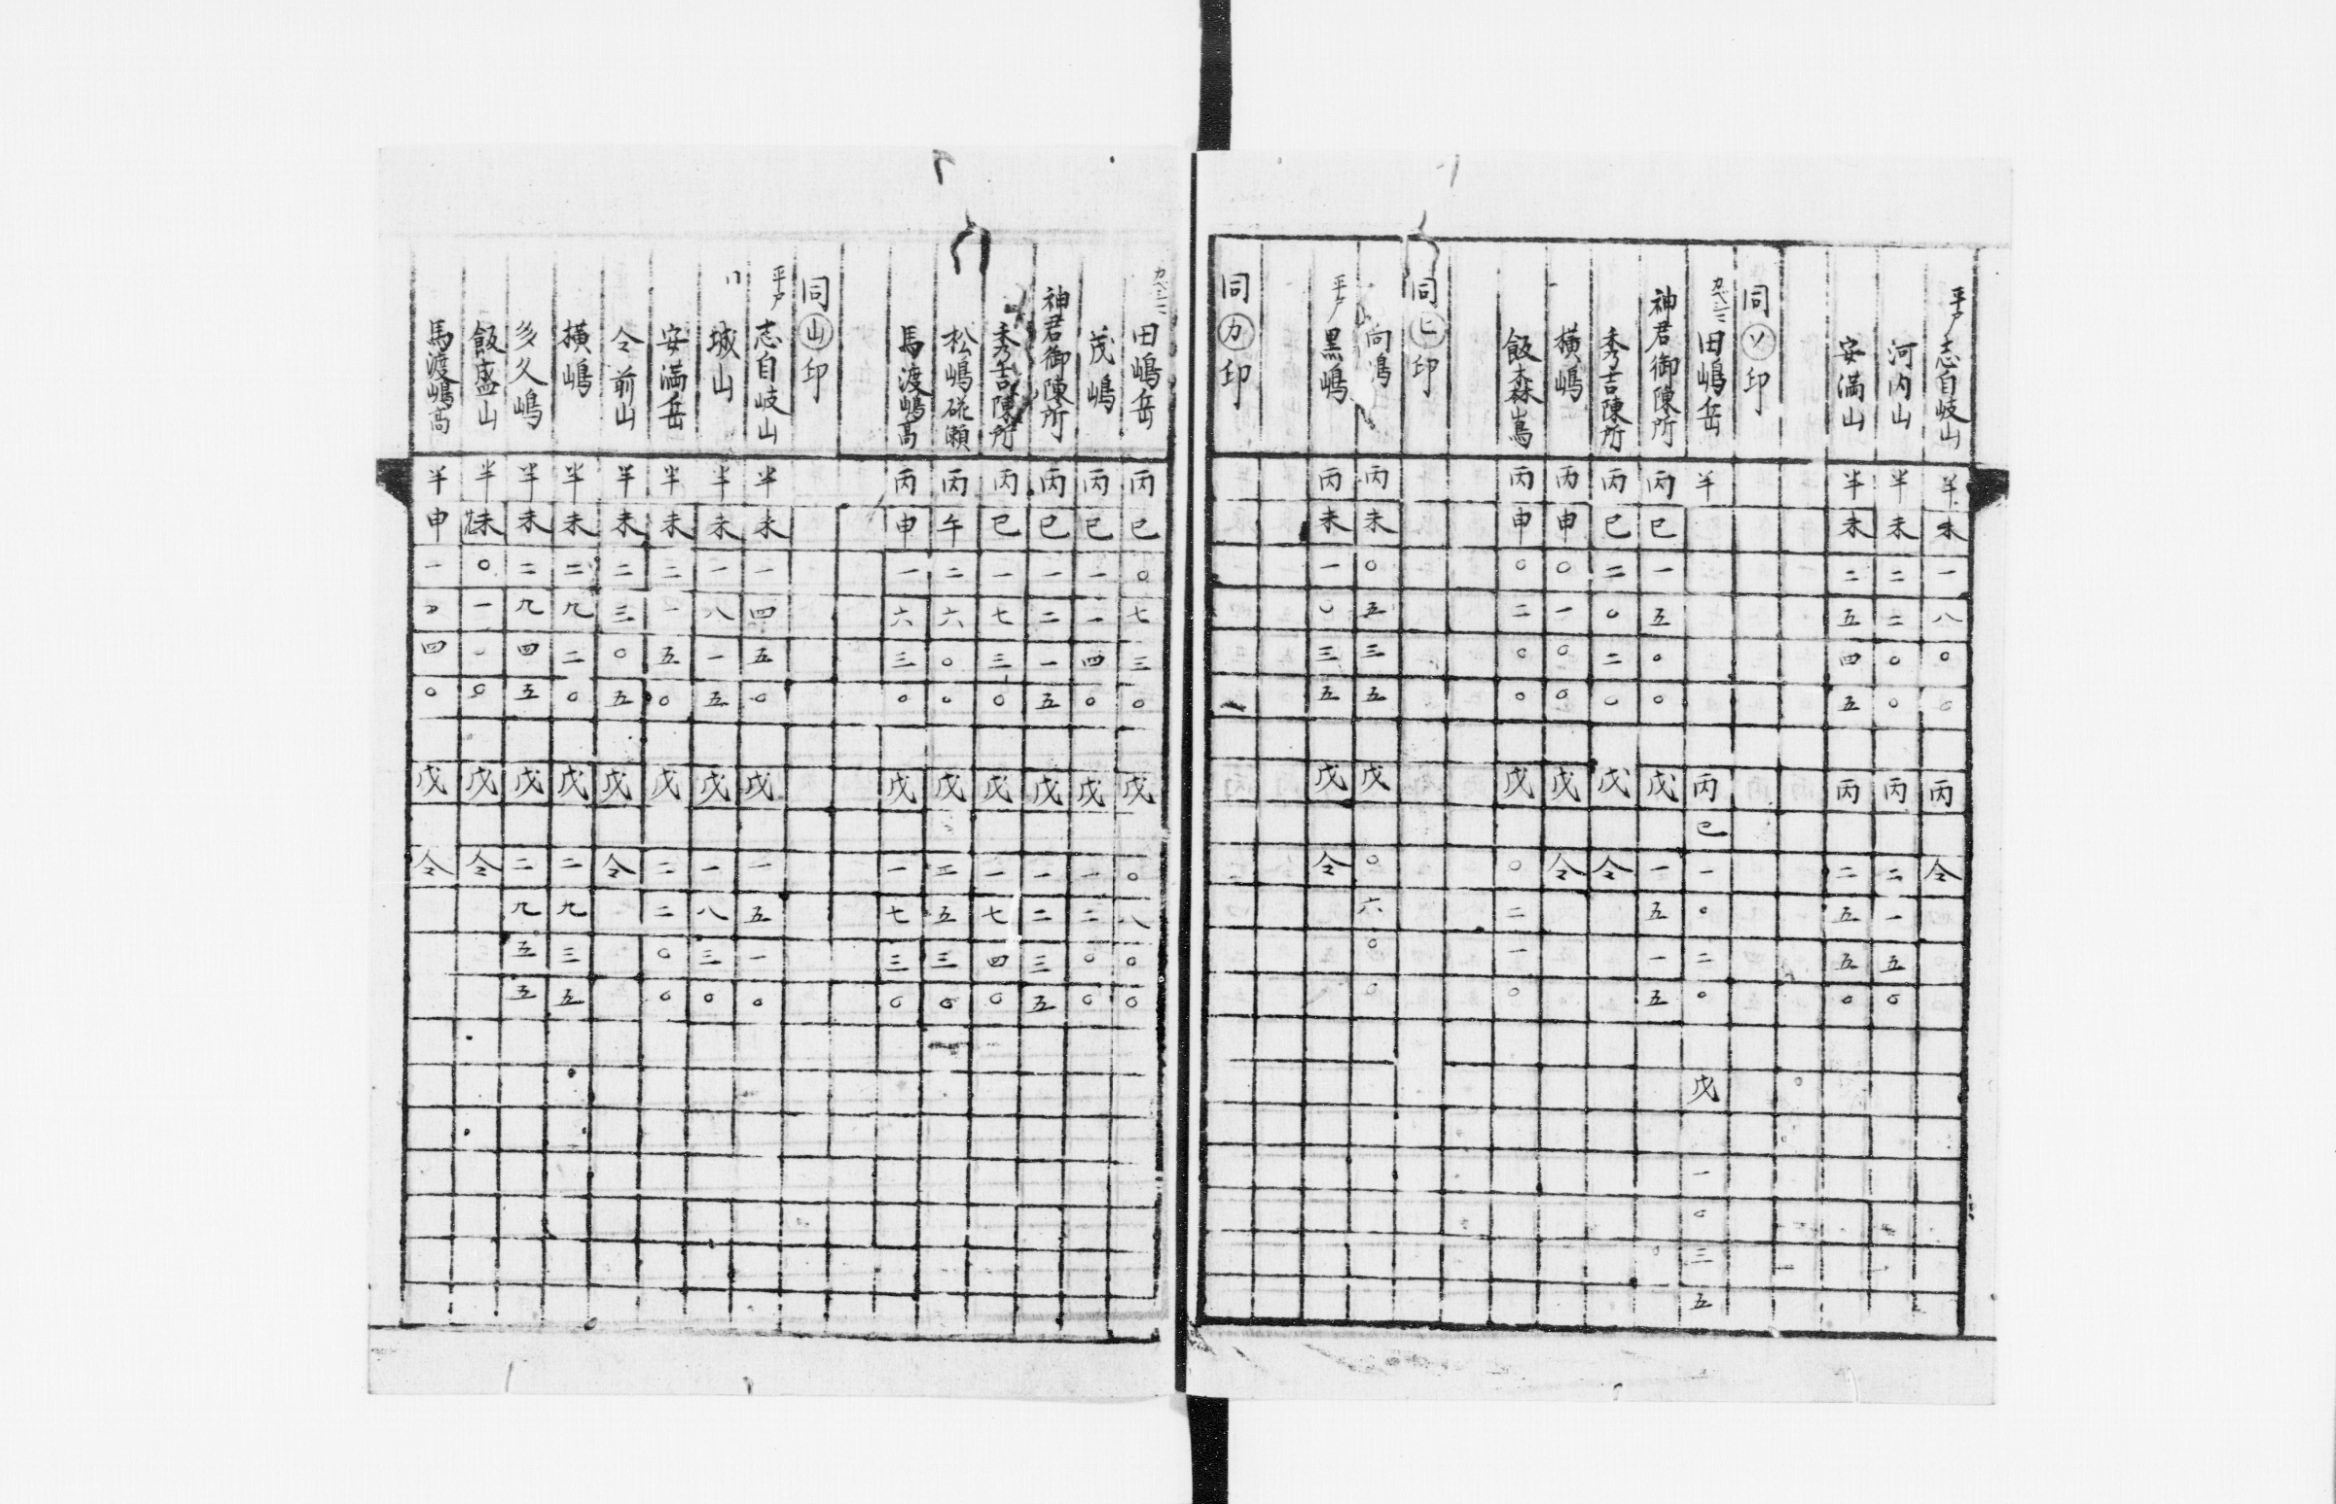 平戸 志自岐山 半 未 一 八 〇 〇 丙 令
河内山 半 未 二 二 〇 〇 丙 二 一 五 〇
安満山 半 未 二 五 四 五 丙 二 五 五 〇
同 ソ 印
カベシマ 田嶋岳 半 丙 巳 一 〇 二 〇 戊 一 〇 三 五
神君御陳所 丙 巳 一 五 〇 〇 戊 一 五 一 五
秀吉陳所 丙 巳 二 〇 二 〇 戊 令
横嶋 丙 申 〇 一 〇 〇 戊 令
飯森嶌 丙 申 〇 二 〇 〇 戊 〇 二 一 〇
同 ヒ 印
向嶋 丙 未 〇 五 三 五 戊 〇 六 〇 〇
平戸 黒嶋 丙 未 一 〇 三 五 戊 令
同 カ 印
カベシマ 田嶋岳 丙 巳 〇 七 三 〇 戊 〇 八 〇 〇
茂嶋 丙 巳 一 一 四 〇 戊 一 二 〇 〇
神君御陳所 丙 巳 一 二 一 五 戊 一 二 三 五
秀吉陳所 丙 巳 一 七 三 〇 戊 一 七 四 〇
松嶋碆瀬 丙 午 二 六 〇 〇 戊 二 五 三 〇
馬渡嶋高 丙 申 一 六 三 〇 戊 一 七 三 〇
同 山 印
平戸 志自岐山 半 未 一 四 五 〇 戊 一 五 一 〇
〃 城山 半 未 一 八 一 五 戊 一 八 三 〇
安満岳 半 未 二 一 五 〇 戊 二 二 〇 〇
令前山 半 未 二 三 〇 五 戊 令
横嶋 半 未 二 九 二 〇 戊 二 九 三 五
多久嶋 半 未 二 九 四 五 戊 二 九 五 五
飯盛山 半 未 〇 一 一 〇 戊 令
馬渡嶋高 半 申 一 二 四 〇 戊 令